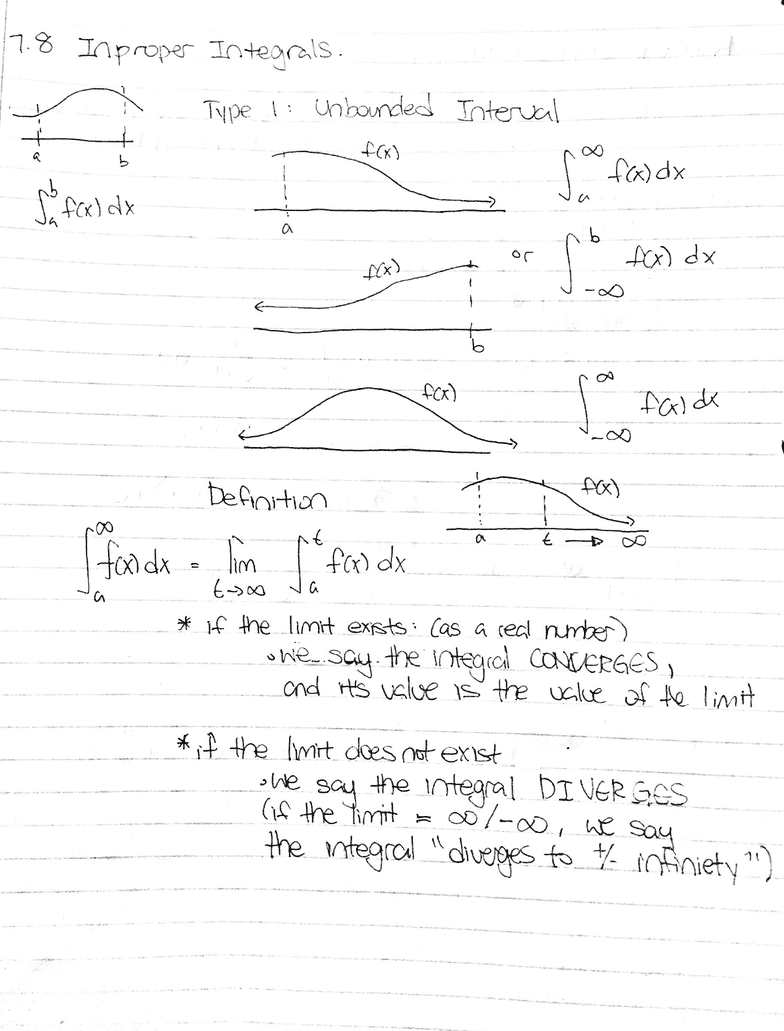 7.8 Inproper Integrals.
Type 1: Unbounded Interval
a b
∫_a^b f(x) dx
f(x)
a
∫_a^∞ f(x) dx
f(x)
b
or ∫_{-∞}^b f(x) dx
f(x)
∫_{-∞}^∞ f(x) dx
Definition
f(x)
a t → ∞
∫_a^∞ f(x) dx = lim_{t→∞} ∫_a^t f(x) dx
* if the limit exists: (as a real number)
• we say the integral CONVERGES,
and it's value is the value of the limit
* if the limit does not exist
• we say the integral DIVERGES
(if the limit = ∞/-∞, we say
the integral "diverges to +/- infiniety")